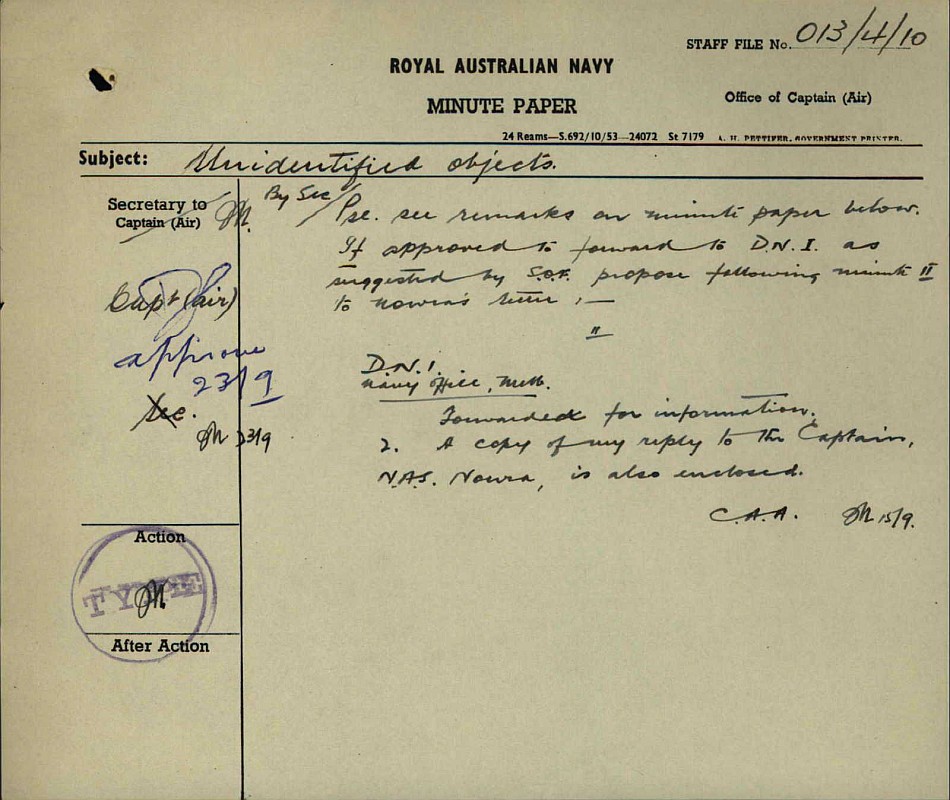 STAFF FILE No. 013/4/10
ROYAL AUSTRALIAN NAVY
MINUTE PAPER
Office of Captain (Air)
24 Reams—S.692/10/53—24072 St 7179 A. H. PETTIFER, GOVERNMENT PRINTER.
Subject: Unidentified objects.
Secretary to
Captain (Air)
By Sec
Pse. see remarks on minute paper below.
If approved to forward to D.N.I. as
suggested by S.O.F. propose following minute II
to Nowra's letter :—
Capt (Air)
approve
23/9
Sec.
23/9
"
D.N.I.
Navy Office, Melb.
Forwarded for information.
2. A copy of my reply to the Captain,
N.A.S. Nowra, is also enclosed.
C.A.A. 15/9.
Action
TYPE
After Action